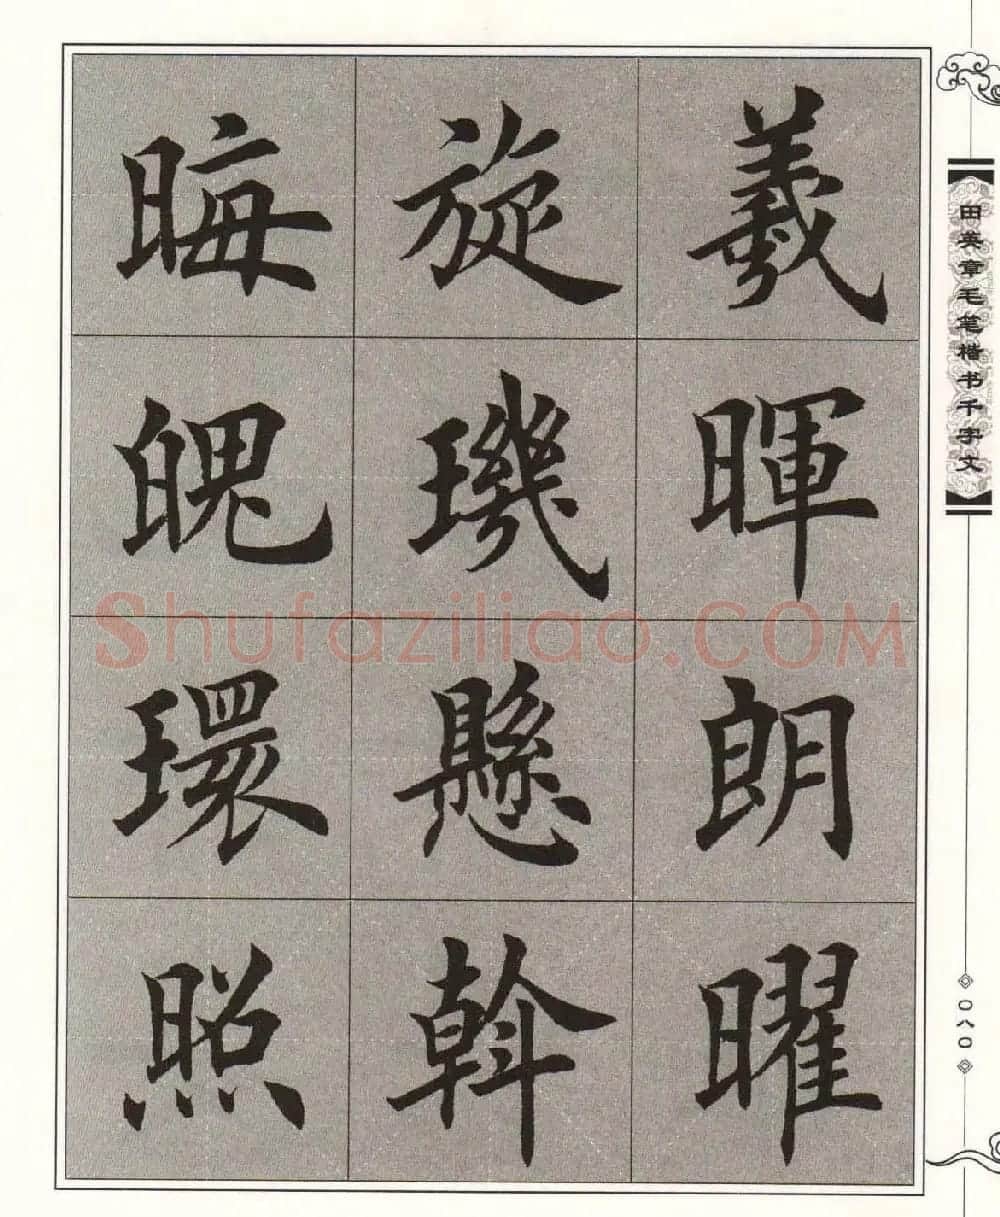 羲暉朗曜
旋璣懸斡
晦魄環照
田英章毛笔楷书千字文
〇八〇
Shufaziliao.COM